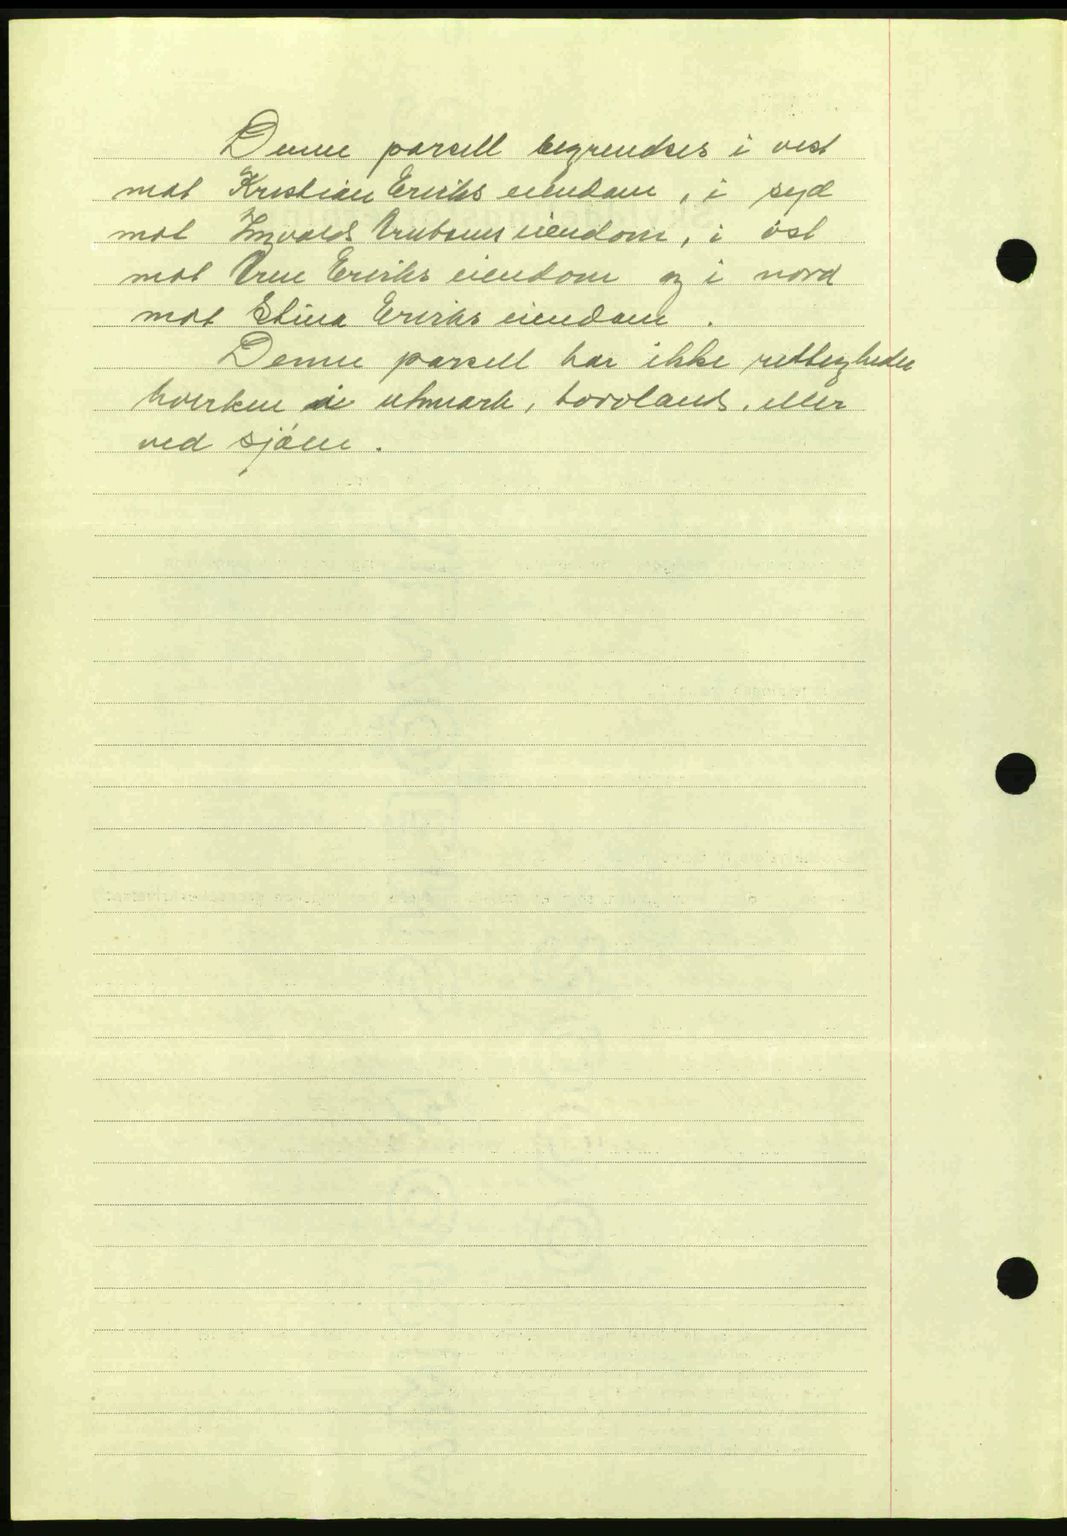 Denne parsell begrendses i vest
mot Kristian Eriks eiendom, i syd
mot Invalds Knutsens eiendom, i öst
mot Arne Eriks eiendom og i nord
mot Stina Eriks eiendom.
Denne parsell har ikke rettigheder
hverken i utmark, torvland, eller
ved sjöen.